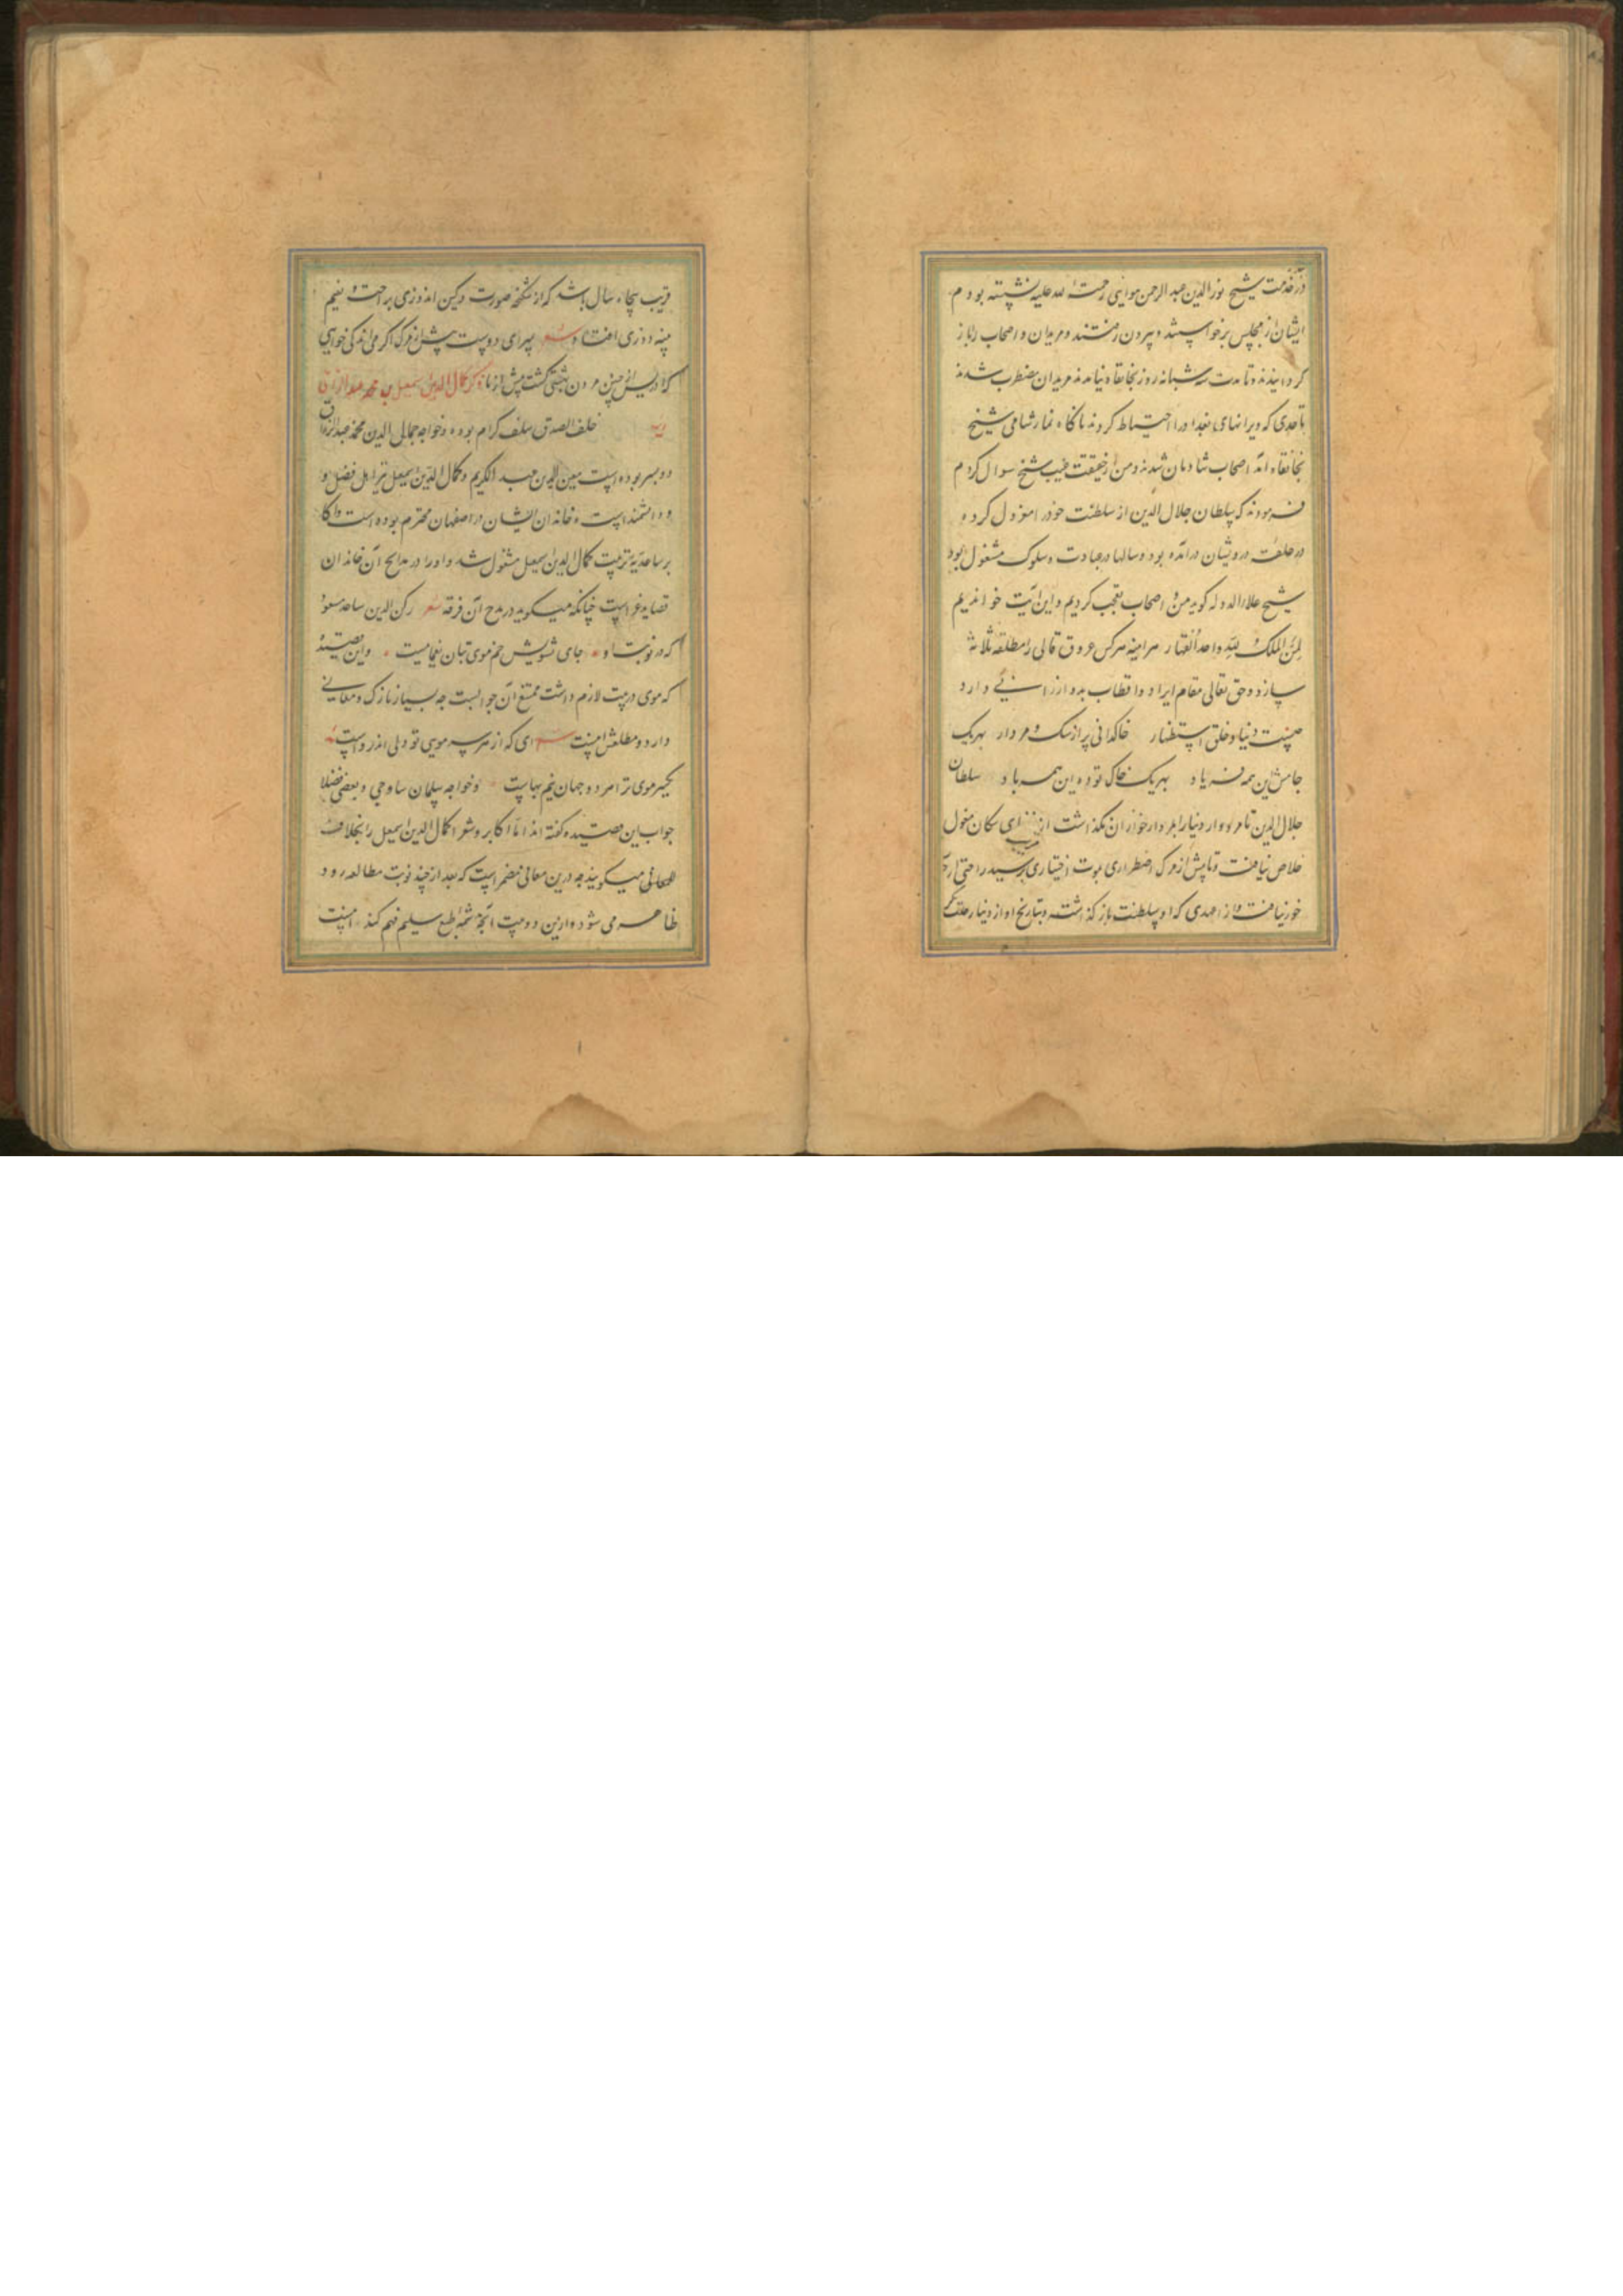 در خدمت شیخ نور الدین عبد الرحمن رحمة الله علیه نشسته بودم
ایشان از مجلس برخواستند و بیرون رفتند و مریدان و اصحاب را باز
کردانیدند و تا مدت سه شبانه روز بخانقاه نیامدند مریدان مضطرب شدند
تا حدی که ویرانهای بغداد را احتیاط کردند ناکاه نماز شامی شیخ
بخانقاه آمد اصحاب شادمان شدند و من از حقیقت غیبت شیخ سوال کردم
فرمودند که سلطان جلال الدین از سلطنت خود را معزول کرده
در حلقت درویشان درآمده بود و سالها در عبادت و سلوک مشغول بود
شیخ علاء الدوله کوید من و اصحاب تعجب کردیم و این آیت خواندیم
لمن الملک لله واحد القهار هر آینه هرکس عروق را مطلقه ثلاثه
سازد و حق تعالی مقام ابرار و اقطاب بدو ارزانی دارد
چیست دنیا و خلق استظهار خاکدانی پر از سک و مردار بهریک
جامش این همه فریاد بهریک خاک توده این همه باد سلطان
جلال الدین تا مردوار دنیا را بمردارخواران نکذاشت از سکان مغول
خلاص نیافت و تا پیش از مرک اضطراری بموت اختیاری نرسید راحتی از
خود نیافت و از عهدی که او سلطنت باز کذاشته و بتاریخ او از دنیا رحلت کرد
قریب پنجاه سال باشد که از شکنجه صورت و کین اندوزی براحت و نعیم
پنبه دوزی افتاد بمیر ای دوست پیش از مرک اکر می زندکی خواهی
که ادریس از چنین مردن بهشتی کشت پیش از ما ذکر کمال الدین اسمعیل بن محمد عبد الرزاق
خلف الصدق سلف کرام بوده و خواجه جمال الدین محمد عبد الرزاق
دو پسر بوده است معین الدین عبد الکریم و کمال الدین اسمعیل نیز اهل فضل و
دانشمند است و خاندان ایشان در اصفهان محترم بوده است و اکابر
صاعدیه بتربیت کمال الدین اسمعیل مشغول شد و او را در مدایح آن خاندان
قصاید غراست چنانکه میکوید در مدح آن فرقه شعر رکن الدین صاعد مسعود
که در نوبت او جای تشویش خم موی بتان یغماست و این قصیده
که موی در بیت لازم داشته ممتنع آن جوابست چه بسیار نازک و معانی
دارد و مطلعش اینست ای که از هر سر موی تو دلی اندرواست
یکسر موی ترا هر دو جهان نیم بهاست و خواجه سلمان ساوجی و بعضی فضلا
جواب این قصیده کفته اند اما اکابر و شعرا کمال الدین اسمعیل را خلاق
المعانی میکویند چه درین معانی مضمر است که بعد از چند نوبت مطالعه رود
ظاهر می شود و ازین دو بیت آنچه شمه طبع سلیم فهم کند اینست